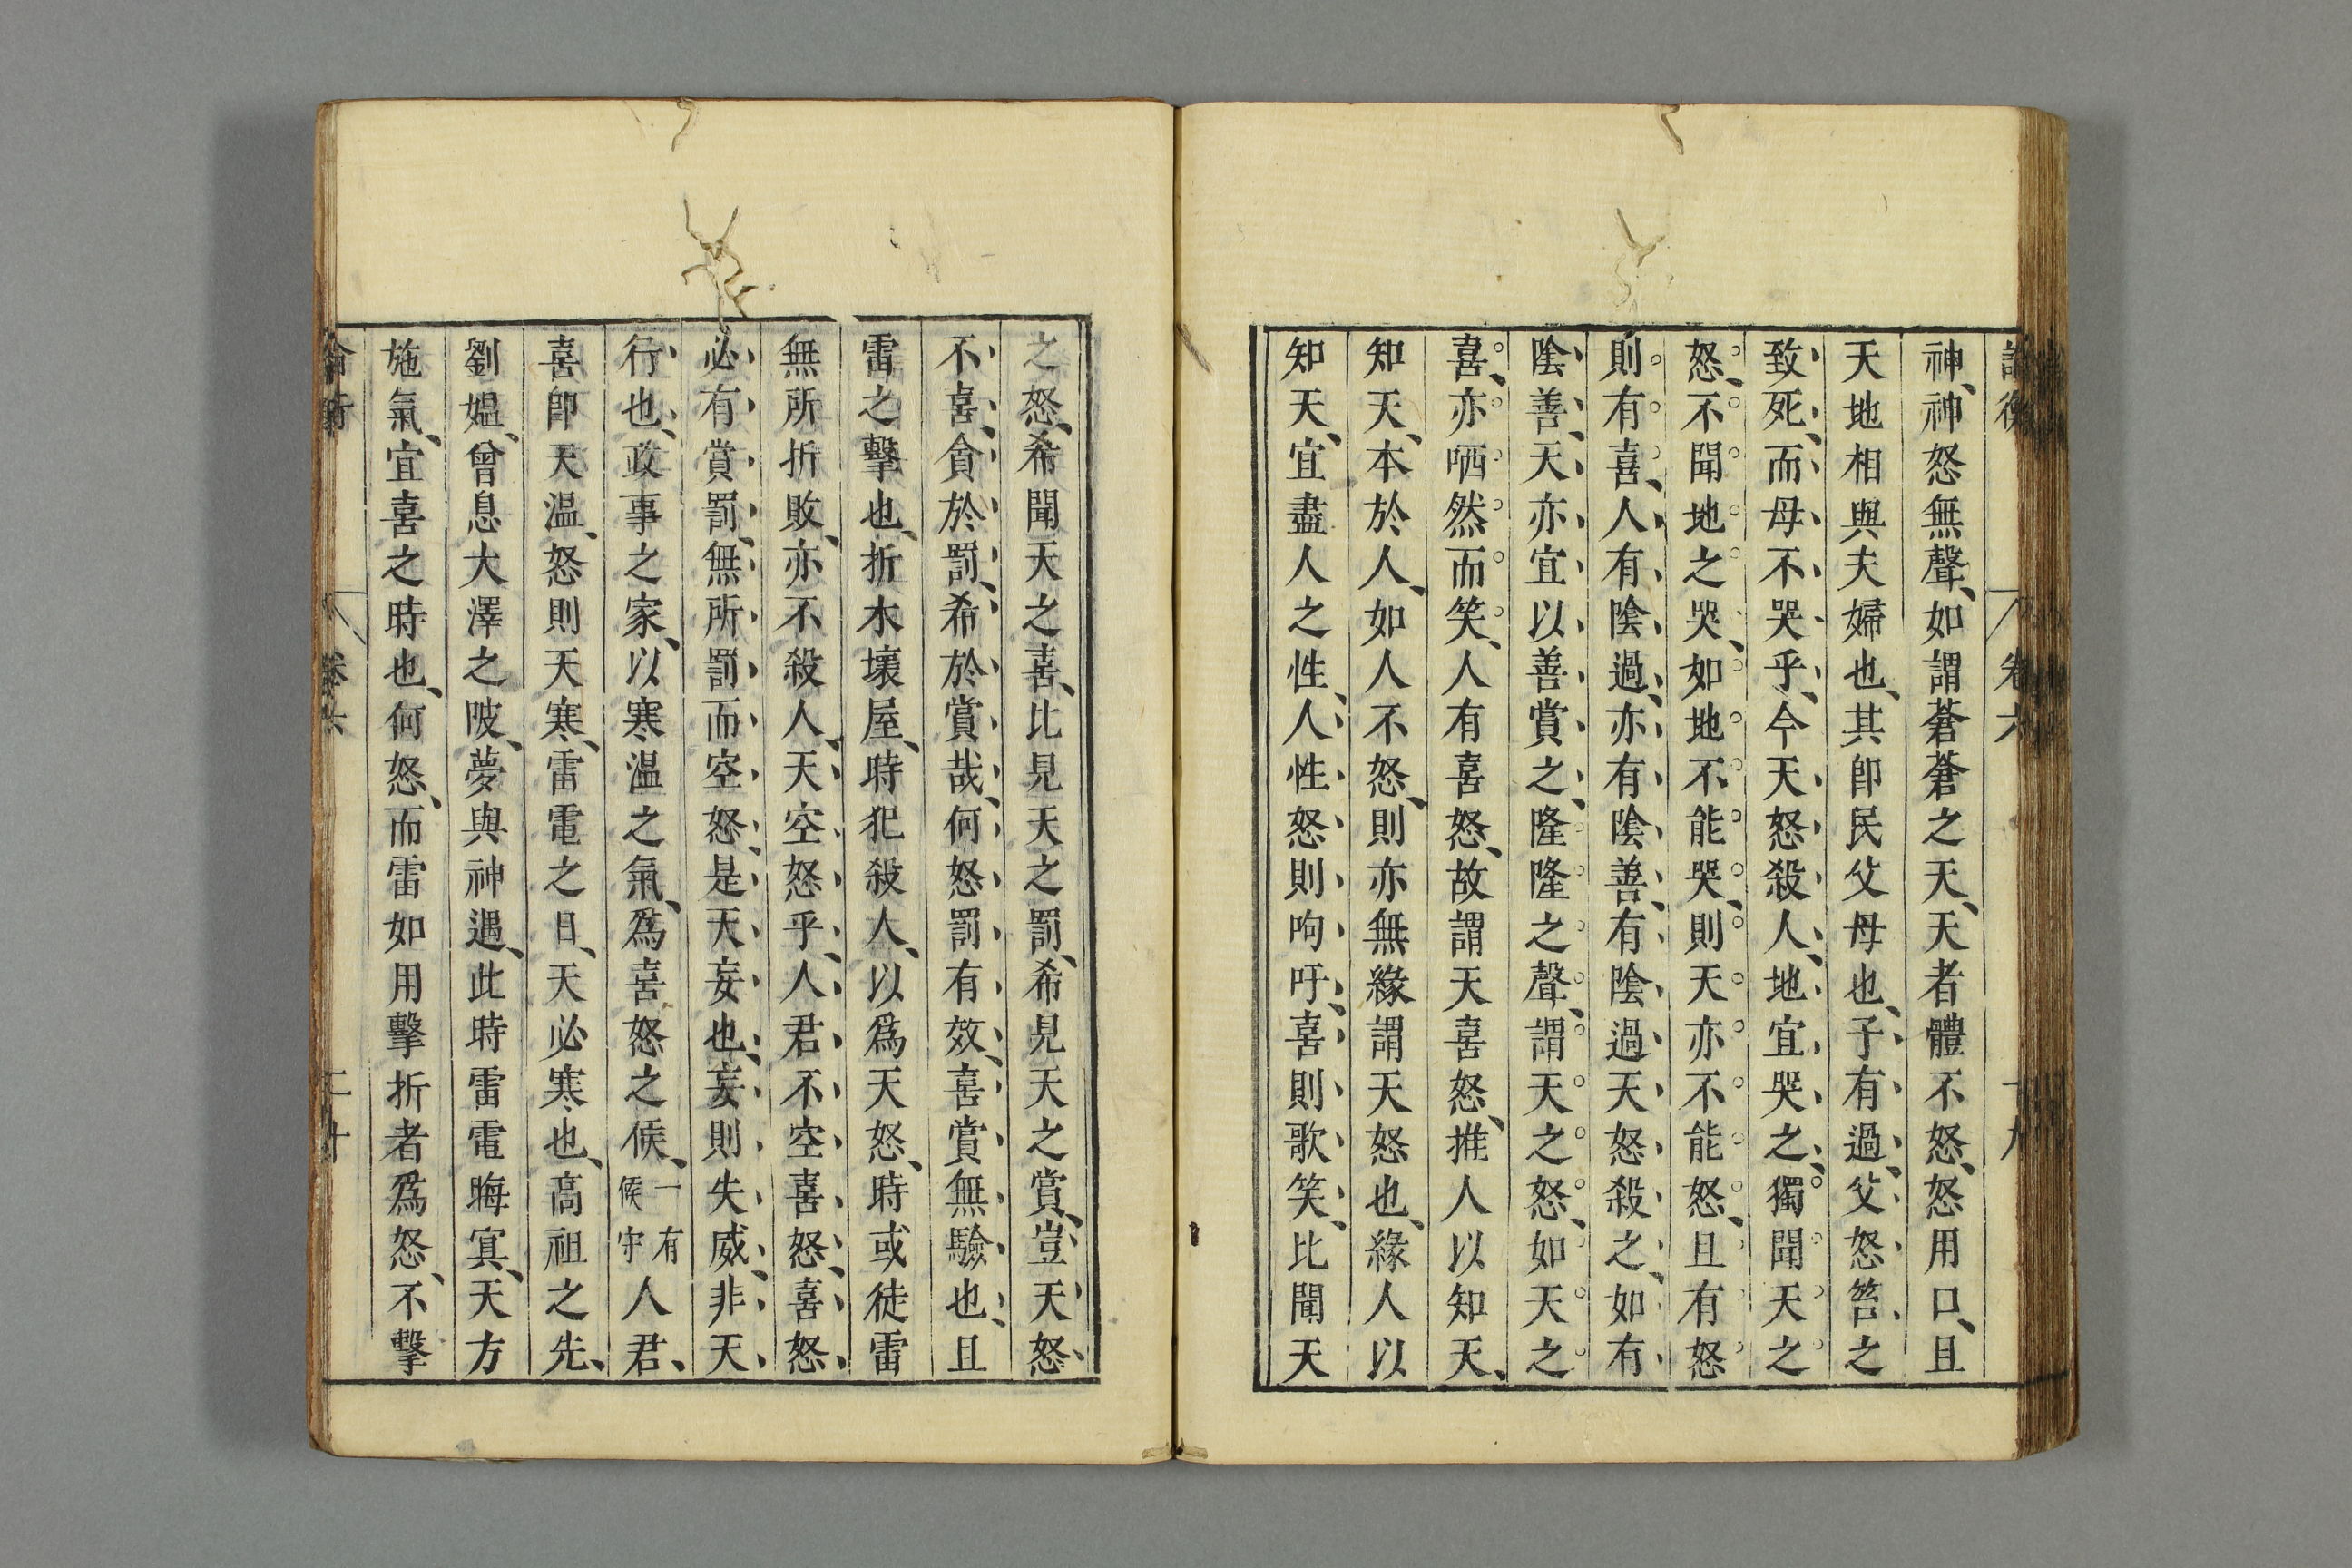 論衡 卷六 十九
神、神怒無聲、如謂蒼蒼之天、天者體不怒、怒用口、且
天地相與夫婦也、其卽民父母也、子有過、父怒笞之
致死、而母不哭乎、今天怒殺人、地宜哭之、獨聞天之
怒、不聞地之哭、如地不能哭、則天亦不能怒、且有怒
則有喜、人有陰過、亦有陰善、有陰過、天怒殺之、如有
陰善、天亦宜以善賞之、隆隆之聲、謂天之怒、如天之
喜、亦哂然而笑、人有喜怒、故謂天喜怒、推人以知天、
知天、本於人、如人不怒、則亦無緣謂天怒也、緣人以
知天、宜盡人之性、人性怒則呴吁、喜則歌笑、比聞天
之怒、希聞天之喜、比見天之罰、希見天之賞、豈天怒
不喜、貪於罰、希於賞哉、何怒罰有效、喜賞無驗也、且
雷之擊也、折木壞屋、時犯殺人、以爲天怒、時或徒雷
無所折敗、亦不殺人、天空怒乎、人君不空喜怒、喜怒
必有賞罰、無所罰而空怒、是天妄也、妄則失威、非天
行也、政事之家、以寒温之氣、爲喜怒之候、一有候守人君、
喜卽天温、怒則天寒、雷電之日、天必寒也、高祖之先、
劉媼、曾息大澤之陂、夢與神遇、此時雷電晦冥、天方
施氣、宜喜之時也、何怒、而雷如用擊折者爲怒、不擊
論衡 卷六 二十